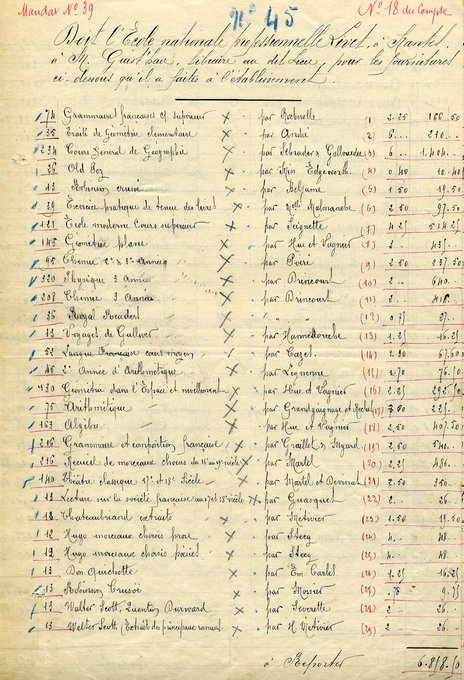 Mandat N° 39 N° 45 N° 18 du Compte
Doit l'Ecole nationale professionnelle Livet, à Nantes,
à M. Guist'hau, libraire au dit lieu, pour les fournitures
ci-dessous qu'il a faites à l'établissement.
74 Grammaire française c. supérieur × par Rabinolle (1) 2.25 166.50
35 Traité de Géométrie élémentaire × par André (2) 6 210
234 Cours Général de Géographie × par Schrader & Gallouédec (3) 6 1.404
26 Old Boz × par Miss Edgeworth (4) 0.40 10.40
13 Robinson crusoé × par Beljame (5) 1.50 19.50
39 Exercice pratique de tenue des livres × par Malmanche (6) 2.50 97.50
121 Ecole moderne Cours supérieur × par Seignette (7) 4.25 514.25
145 Géométrie plane × par Hue et Vagnier (8) 3 435
95 Chimie 2e & 3e Années × par (9) 2.50 237.50
320 Physique 3 Années × par Drincourt (10) 2 640
208 Chimie 3 Années × par Drincourt (11) 2 416
36 Royal Readers × " " (12) 0.75
13 Voyages de Gulliver × par (13) 1.25 16.25
52 Langue Française cours moyen × par Cazes (14) 1.30 67.60
45 2e Année d'Arithmétique × par Leyssenne (15) 1.70 76.50
130 Géométrie dans l'Espace et nivellement × par Hue & Vagnier (16) 2.25 292.50
75 Arithmétique × par (17) 3.00 225
163 Algèbre × par Hue et Vagnier (18) 2.50 407.50
216 Grammaire et composition française × par Graillot & Myard (19) 2.50 540
216 Recueil de morceaux choisis du 16e au 19e siècle × par Martel (20) 2.25 486
140 Théâtre classique 17e et 18e Siècle × par Martel et Devinat (21) 2.50 350
13 Lecture sur la société française au 17 et 18e siècle × par Guasquet (22) 2 26
13 Chateaubriand extraits × par Metivier (23) 1.50 19.50
12 Hugo morceaux choisis prose × par Steeg (24) 4 48
12 Hugo morceaux choisis poésies × par Steeg (25) 4 48
13 Don Quichotte × par Em. Cartel (26) 1.25 16.25
13 Robinson Crusoé × par Mossier (27) .75 9.75
13 Walter Scott, Quentin Durward × par Feverette (28) 2 26
13 Walter Scott (Extraits des principaux romans) × par H. Metivier (29) 2 26
à Reporter 6.858.50